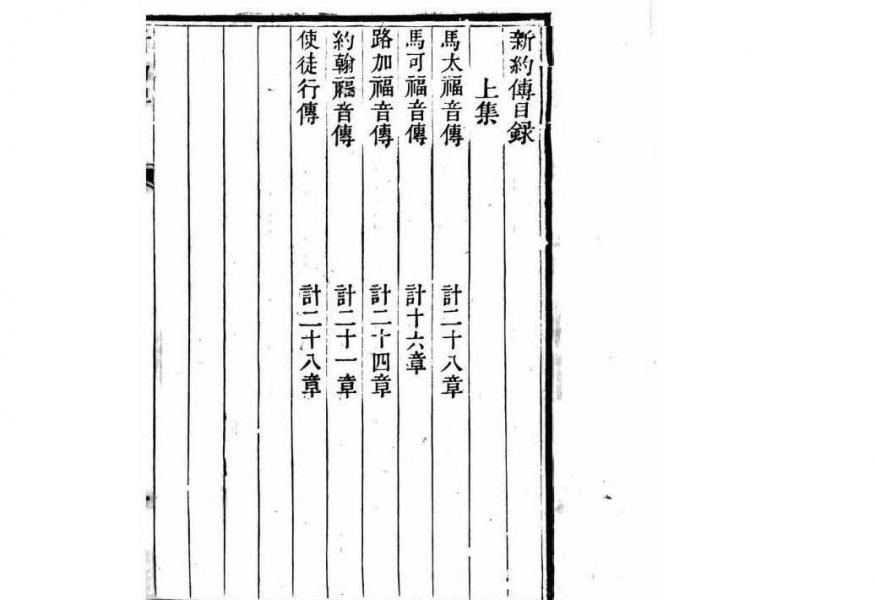 新約傳目録
上集
馬太福音傳 計二十八章
馬可福音傳 計十六章
路加福音傳 計二十四章
約翰福音傳 計二十一章
使徒行傳 計二十八章